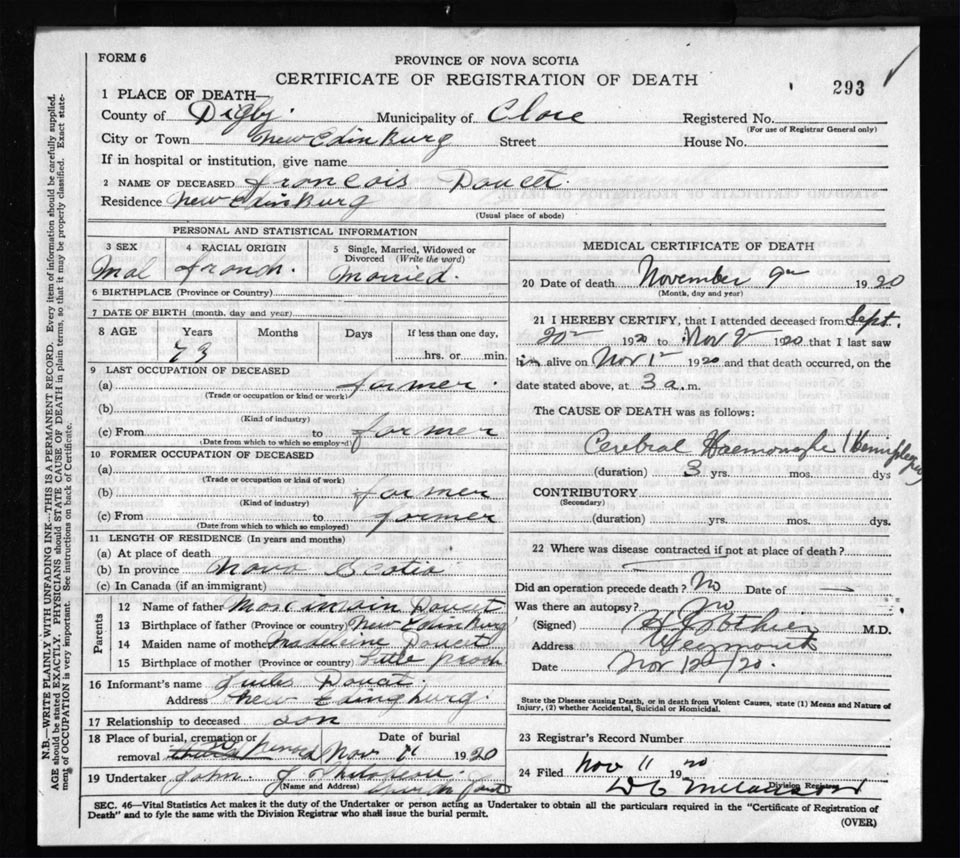 FORM 6
PROVINCE OF NOVA SCOTIA
CERTIFICATE OF REGISTRATION OF DEATH
293
1 PLACE OF DEATH—
County of Digby Municipality of Clare Registered No.
(For use of Registrar General only)
City or Town New Edinburg Street House No.
If in hospital or institution, give name
2 NAME OF DECEASED Francois Doucet.
Residence New Edinburg
(Usual place of abode)
PERSONAL AND STATISTICAL INFORMATION
3 SEX 4 RACIAL ORIGIN 5 Single, Married, Widowed or Divorced (Write the word)
Mal French. Married.
6 BIRTHPLACE (Province or Country)
7 DATE OF BIRTH (month, day and year)
8 AGE Years Months Days If less than one day,
73 hrs. or min.
9 LAST OCCUPATION OF DECEASED
(a) farmer.
(Trade or occupation or kind or work)
(b)
(Kind of industry)
(c) From to farmer
(Date from which to which so employed)
10 FORMER OCCUPATION OF DECEASED
(a)
(Trade or occupation or kind of work)
(b) farmer
(Kind of industry)
(c) From to farmer
(Date from which to which so employed)
11 LENGTH OF RESIDENCE (In years and months)
(a) At place of death
(b) In province Nova Scotia
(c) In Canada (if an immigrant)
Parents
12 Name of father Doucet
13 Birthplace of father (Province or country) New Edinburg
14 Maiden name of mother Madeleine Doucet
15 Birthplace of mother (Province or country)
16 Informant's name Jules Doucet.
Address New Edingburg.
17 Relationship to deceased son
18 Place of burial, cremation or removal Date of burial
Nov 11 1920
19 Undertaker John
(Name and Address)
MEDICAL CERTIFICATE OF DEATH
20 Date of death November 9th 1920
(Month, day and year)
21 I HEREBY CERTIFY, that I attended deceased from Sept.
20th 1920 to Nov 9 1920 that I last saw
him alive on Nov 1st 1920 and that death occurred, on
date stated above, at 3 a.m.
The CAUSE OF DEATH was as follows:
Cerebral Haemorraghe (Hemiplegia)
(duration) 3 yrs. mos. dys
CONTRIBUTORY
(Secondary)
(duration) yrs. mos. dys.
22 Where was disease contracted if not at place of death?
Did an operation precede death? No Date of —
Was there an autopsy? No
(Signed) M.D.
Address Weymouth
Date Nov 12 /20.
State the Disease causing Death, or in death from Violent Causes, state (1) Means and Nature of
Injury, (2) whether Accidental, Suicidal or Homicidal.
23 Registrar's Record Number
24 Filed Nov 11 1920
D C Melanson
Division Registrar
SEC. 46—Vital Statistics Act makes it the duty of the Undertaker or person acting as Undertaker to obtain all the particulars required in the "Certificate of Registration of
Death" and to fyle the same with the Division Registrar who shall issue the burial permit.
(OVER)
N.B.—WRITE PLAINLY WITH UNFADING INK—THIS IS A PERMANENT RECORD. Every item of information should be carefully supplied.
AGE should be stated EXACTLY. PHYSICIANS should STATE CAUSE OF DEATH in plain terms, so that it may be properly classified. Exact state-
ment of OCCUPATION is very important. See instructions on back of Certificate.